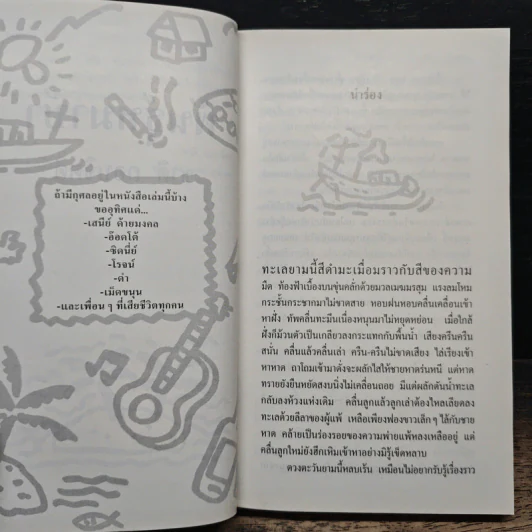 ถ้ามีกุศลอยู่ในหนังสือเล่มนี้บ้าง
ขออุทิศแด่...
-เสนีย์ ด้ายมงคล
-อ๊อดโต้
-ซิดนี่ย์
-โรจน์
-ดำ
-เม็ดขนุน
-และเพื่อน ๆ ที่เสียชีวิตทุกคน
นำร่อง
ทะเลยามนี้สีดำมะเมื่อมราวกับสีของความ
มืด ท้องฟ้าเบื้องบนขุ่นคลั่กด้วยมวลเมฆมรสุม แรงลมโหม
กระชั้นกระชากมาไม่ขาดสาย หอบฝนหอบคลื่นเคลื่อนเข้า
หาฝั่ง ทัพคลื่นทะมึนเนื่องหนุนมาไม่หยุดหย่อน เมื่อใกล้
ฝั่งก็ม้วนตัวเป็นเกลียวลงกระแทกกับพื้นน้ำ เสียงครืนครืน
สนั่น คลื่นแล้วคลื่นเล่า ครืน-ครืนไม่ขาดเสียง ไล่เรียงเข้า
หาหาด ถาโถมเข้ามาดั่งจะผลักไสให้ชายหาดร่นหนี แต่หาด
ทรายยังยืนหยัดสงบนิ่งไม่เคลื่อนถอย มีแต่ผลักดันน้ำทะเล
กลับลงห้วงแห่งเดิม คลื่นลูกแล้วลูกเล่าต้องไหลเลียดลง
ทะเลด้วยลีลาของผู้แพ้ เหลือเพียงฟองขาวเล็กๆ ไล้กับชาย
หาด คล้ายเป็นร่องรอยของความพ่ายแพ้หลงเหลืออยู่ แต่
คลื่นลูกใหม่ยังฮึกเหิมเข้าหาอย่างมิรู้เข็ดหลาบ
ดวงตะวันยามนี้หลบเร้น เหมือนไม่อยากรับรู้เรื่องราว